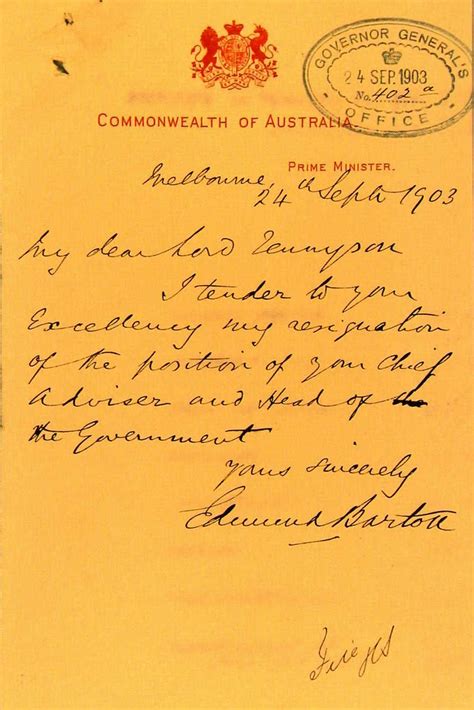 GOVERNOR GENERAL'S
24 SEP. 1903
No. 402 a
OFFICE
COMMONWEALTH OF AUSTRALIA.
PRIME MINISTER.
Melbourne,
24th Sept 1903
My dear Lord Tennyson
I tender to your
Excellency my resignation
of the position of your Chief
Adviser and Head of the
the Government
Yours sincerely
Edmund Barton
File